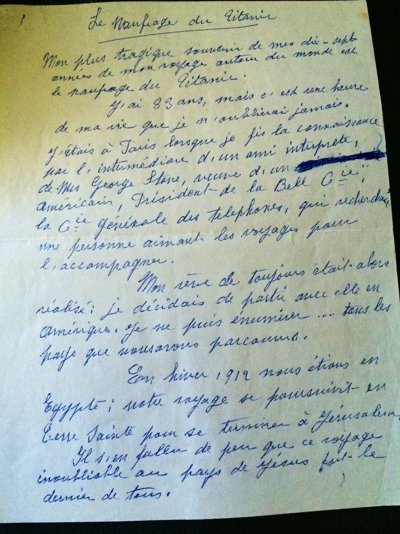 Le Naufrage du Titanic
Mon plus tragique souvenir de mes dix-sept
années de mon voyage autour du monde est
le naufrage du Titanic.
J'ai 83 ans, mais c'est une heure
de ma vie que je n'oublierai jamais.
J'étais à Paris lorsque je fis la connaissance
par l'intermédiaire d'un ami interprète,
de Mrs George Stone, veuve d'un
américain, Président de la Bell Cie;
la Cie générale des telephones, qui recherchait
une personne aimant les voyages pour
l'accompagner.
Mon rêve de toujours était alors
réalisé: je décidais de partir avec elle en
Amérique. Je ne puis énumérer ... tous les
pays que nous avons parcourus.
En hiver 1912 nous étions en
Egypte; notre voyage se poursuivit en
Terre Sainte pour se terminer à Jérusalem.
Il s'en fallu de peu que ce voyage
inoubliable au pays de Jésus fut le
dernier de tous.